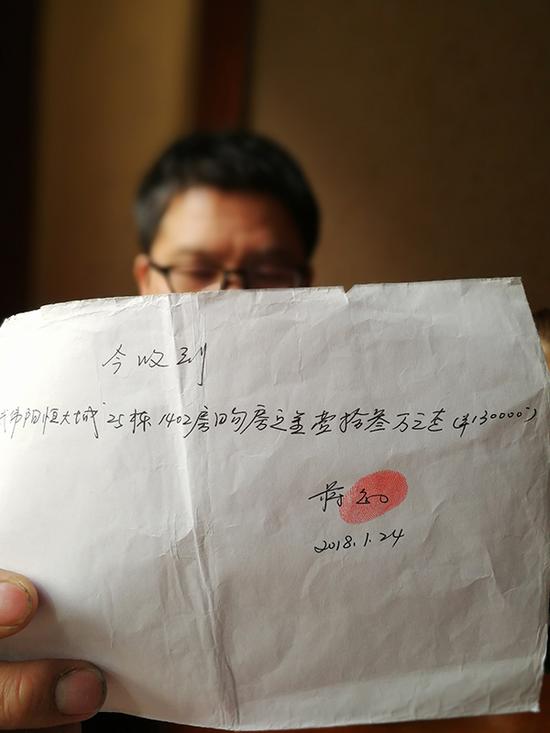 今收到
恒大城25栋1402房购房定金壹拾叁万元整(¥130000-)
蒋
2018.1.24